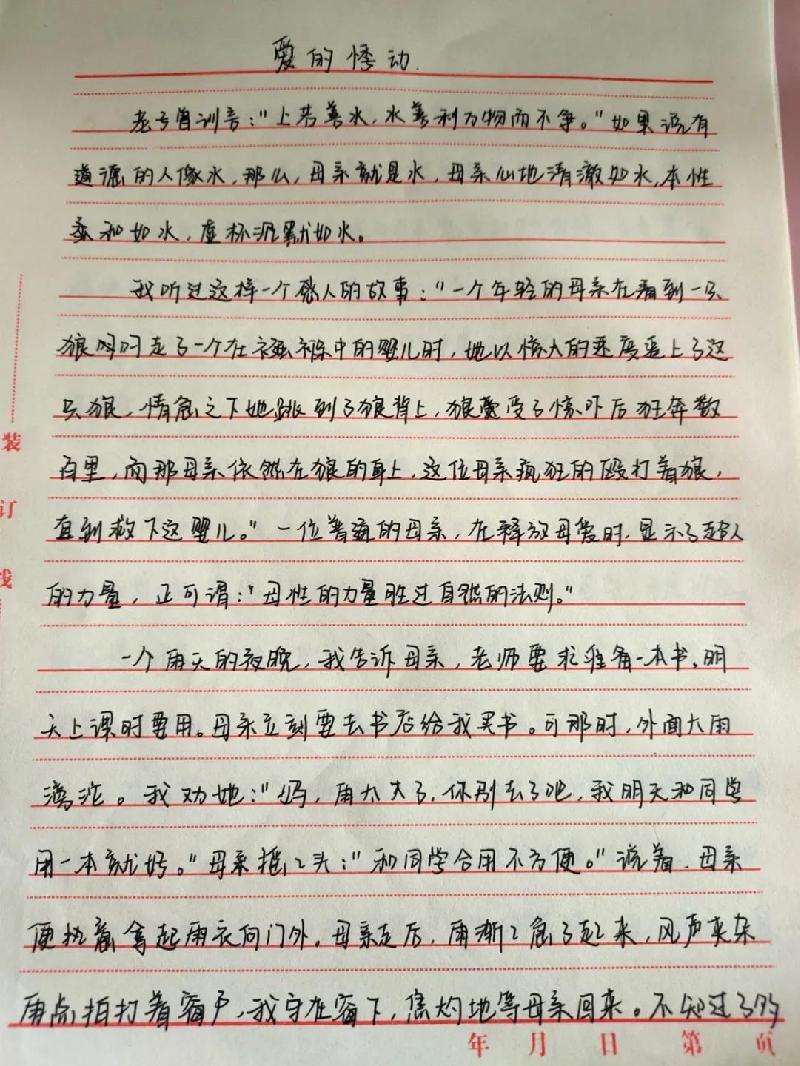 爱的悸动
老子曾训言:"上若善水,水善利万物而不争。"如果说有
道德的人像水,那么,母亲就是水,母亲心地清澈如水,本性
柔和如水,虚怀沉默如水。
我听过这样一个感人的故事:"一个年轻的母亲在看到一只
狼叼走了一个在襁褓中的婴儿时,她以惊人的速度追上了这
只狼,情急之下她跳到了狼背上,狼受了惊吓后狂奔数
百里,而那母亲依然在狼的身上,这位母亲疯狂的殴打着狼,
直到救下这婴儿。"一位普通的母亲,在释放母爱时,显示了超人
的力量,正可谓:"母性的力量胜过自然的法则。"
一个雨天的夜晚,我告诉母亲,老师要求准备一本书,明
天上课时要用。母亲立刻要去书店给我买书。可那时,外面大雨
滂沱。我劝她:"妈,雨太大了,你别去了吧,我明天和同学
用一本就好。"母亲摇摇头:"和同学合用不方便。"说着,母亲
便执意拿起雨衣向门外。母亲走后,雨渐渐急了起来,风声夹杂
雨点拍打着窗户,我守在窗下,焦灼地等母亲回来。不知过了多
装订线
年 月 日 第 页